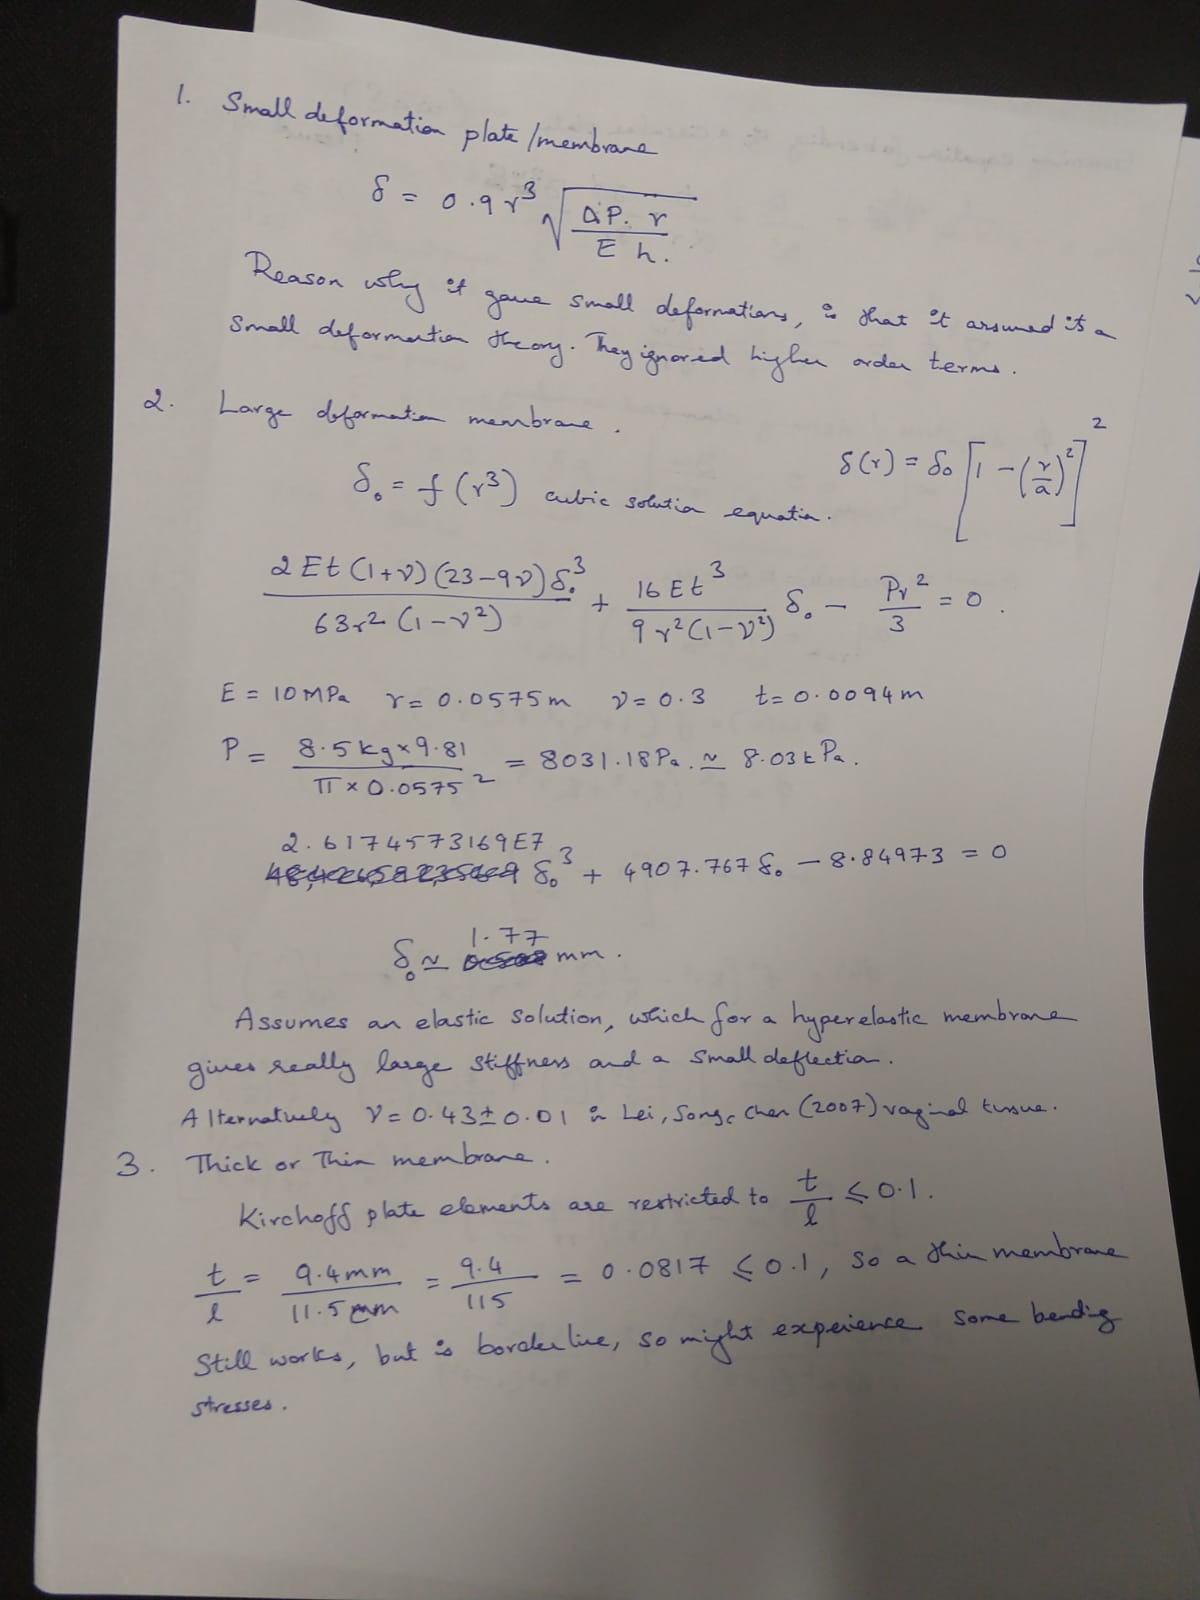 1. Small deformation plate/membrane
δ = 0.9 r³ √(ΔP. r / E h.)
Reason why it gave small deformations, is that it assumed it's a
small deformation theory. They ignored higher order terms.
2. Large deformation membrane.
δ₀ = f(r³) cubic solution equation. δ(r) = δ₀ [1 - (r/a)²]²
2Et(1+ν)(23-9ν)δ₀³ / 63r²(1-ν²) + 16Et³ / 9r²(1-ν²) δ₀ - Pr²/3 = 0.
E = 10MPa r = 0.0575m ν = 0.3 t = 0.0094m
P = 8.5kg×9.81 / π×0.0575² = 8031.18Pa. ≃ 8.03kPa.
2.6174573169E7 δ₀³ + 4907.767δ₀ - 8.84973 = 0
δ₀ ≃ 1.77 mm.
Assumes an elastic solution, which for a hyperelastic membrane
gives really large stiffness and a small deflection.
Alternatively ν = 0.43±0.01 in Lei, Song, Chen (2007) vaginal tissue.
3. Thick or Thin membrane.
Kirchoff plate elements are restricted to t/l ≤ 0.1.
t/l = 9.4mm / 11.5cm = 9.4/115 = 0.0817 ≤ 0.1, so a thin membrane
still works, but is borderline, so might experience some bending
stresses.